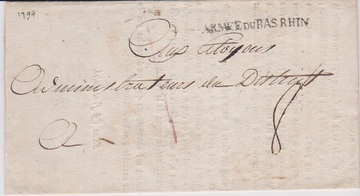 1794
ARMÉE DU BAS RHIN
Aux Citoyens
Administrateurs du District
A
8